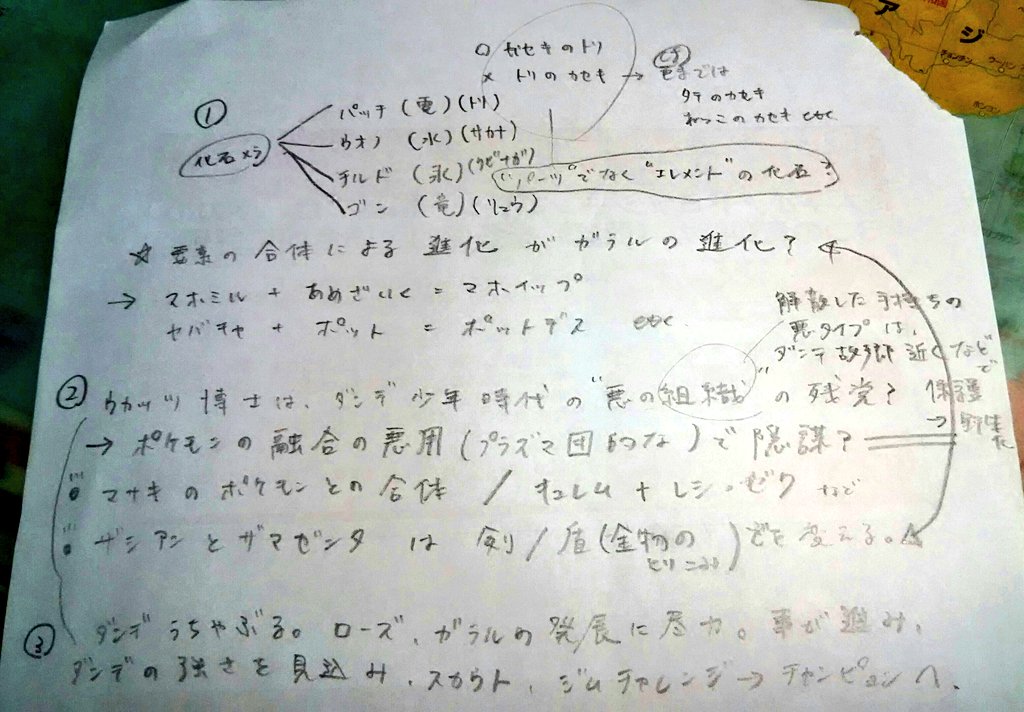 ○ カセキのトリ
× トリのカセキ → 今までは
タテのカセキ
ねっこのカセキ とか
①
化石メラ
パッチ (電) (トリ)
ウオノ (水) (サカナ)
チルド (氷) (クビナガ)
ゴン (竜) (リュウ)
"パーツ"でなく"エレメント"の化石?
☆ 要素の合体による進化がガラルの進化?
→ マホミル + あめざいく = マホイップ
ヤバチャ + ポット = ポットデス とか
解散した手持ちの
悪タイプは、
ダンデ故郷近くなどで
保護
→ 野生化
② ウカッツ博士は、ダンデ少年時代の"悪の組織"の残党?
→ ポケモンの融合の悪用(プラズマ団的な)で陰謀?
マサキのポケモンとの合体 / キュレム + レシ・ゼク など
ザシアンとザマゼンタ は 剣/盾(金物の とりこみ)で姿を変える。
③ ダンデうちやぶる。ローズ、ガラルの発展に尽力。事が進み、
ダンデの強さを見込み、スカウト、ジムチャレンジ→チャンピョンへ。
ア
ジ